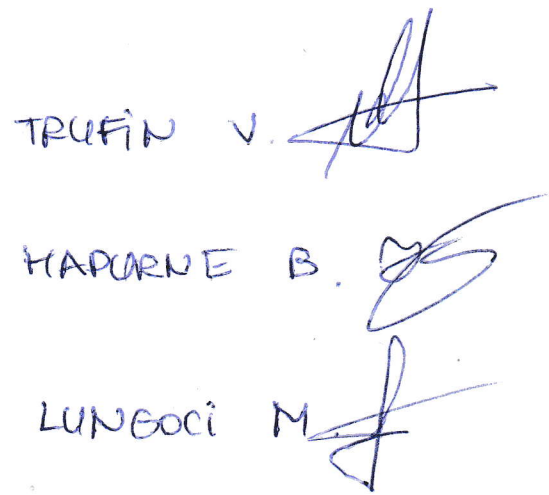 TRUFiN V.
HAPURNE B.
LUNGOCi M.